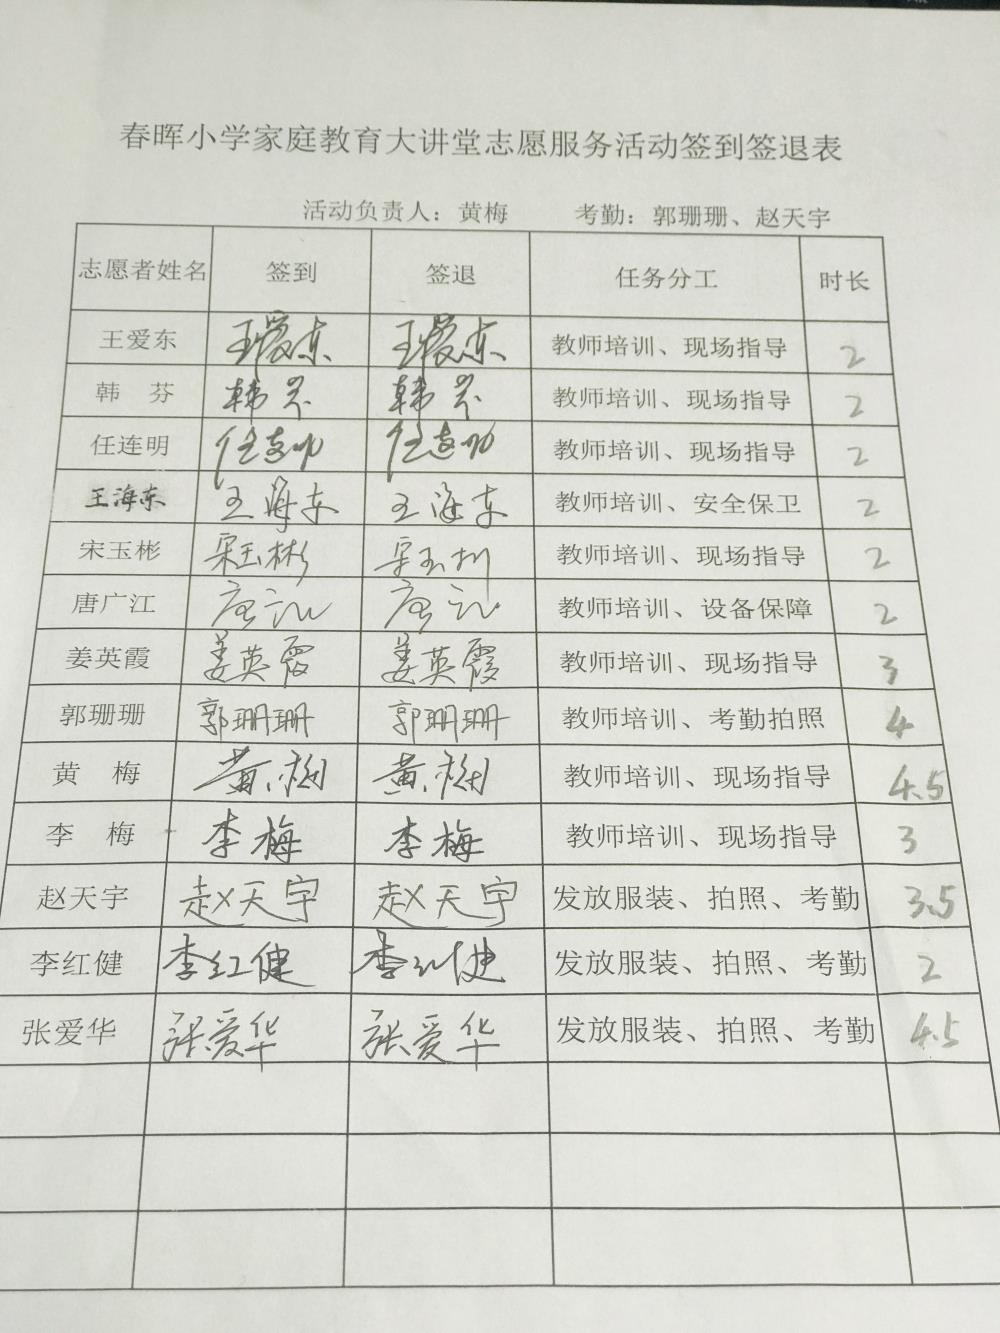 春晖小学家庭教育大讲堂志愿服务活动签到签退表
活动负责人：黄梅 考勤：郭珊珊、赵天宇
志愿者姓名 签到 签退 任务分工 时长
王爱东 王爱东 王爱东 教师培训、现场指导 2
韩 芬 韩芬 韩芬 教师培训、现场指导 2
任连明 任连明 任连明 教师培训、现场指导 2
王海东 王海东 王海东 教师培训、安全保卫 2
宋玉彬 宋玉彬 宋玉彬 教师培训、现场指导 2
唐广江 唐广江 唐广江 教师培训、设备保障 2
姜英霞 姜英霞 姜英霞 教师培训、现场指导 3
郭珊珊 郭珊珊 郭珊珊 教师培训、考勤拍照 4
黄 梅 黄梅 黄梅 教师培训、现场指导 4.5
李 梅 李梅 李梅 教师培训、现场指导 3
赵天宇 赵天宇 赵天宇 发放服装、拍照、考勤 3.5
李红健 李红健 李红健 发放服装、拍照、考勤 2
张爱华 张爱华 张爱华 发放服装、拍照、考勤 4.5